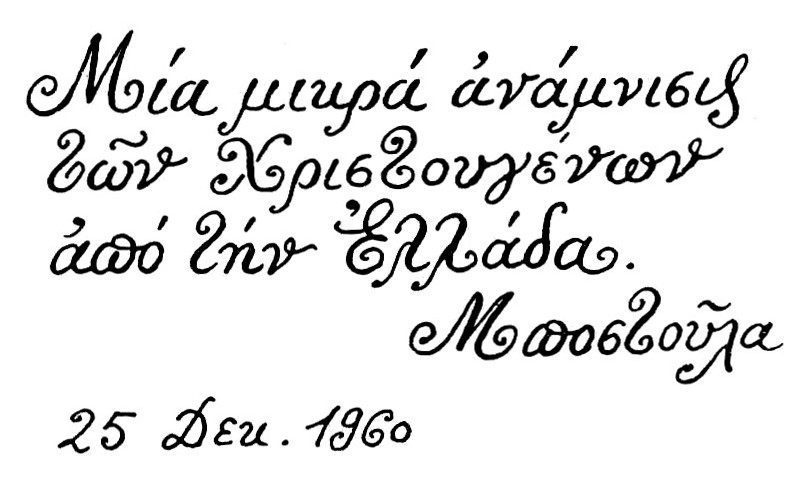 Μία μικρά ἀνάμνισις
τῶν Χριστουγένων
ἀπό τήν Ἑλλάδα.
Μποστοῦλα
25 Δεκ. 1960